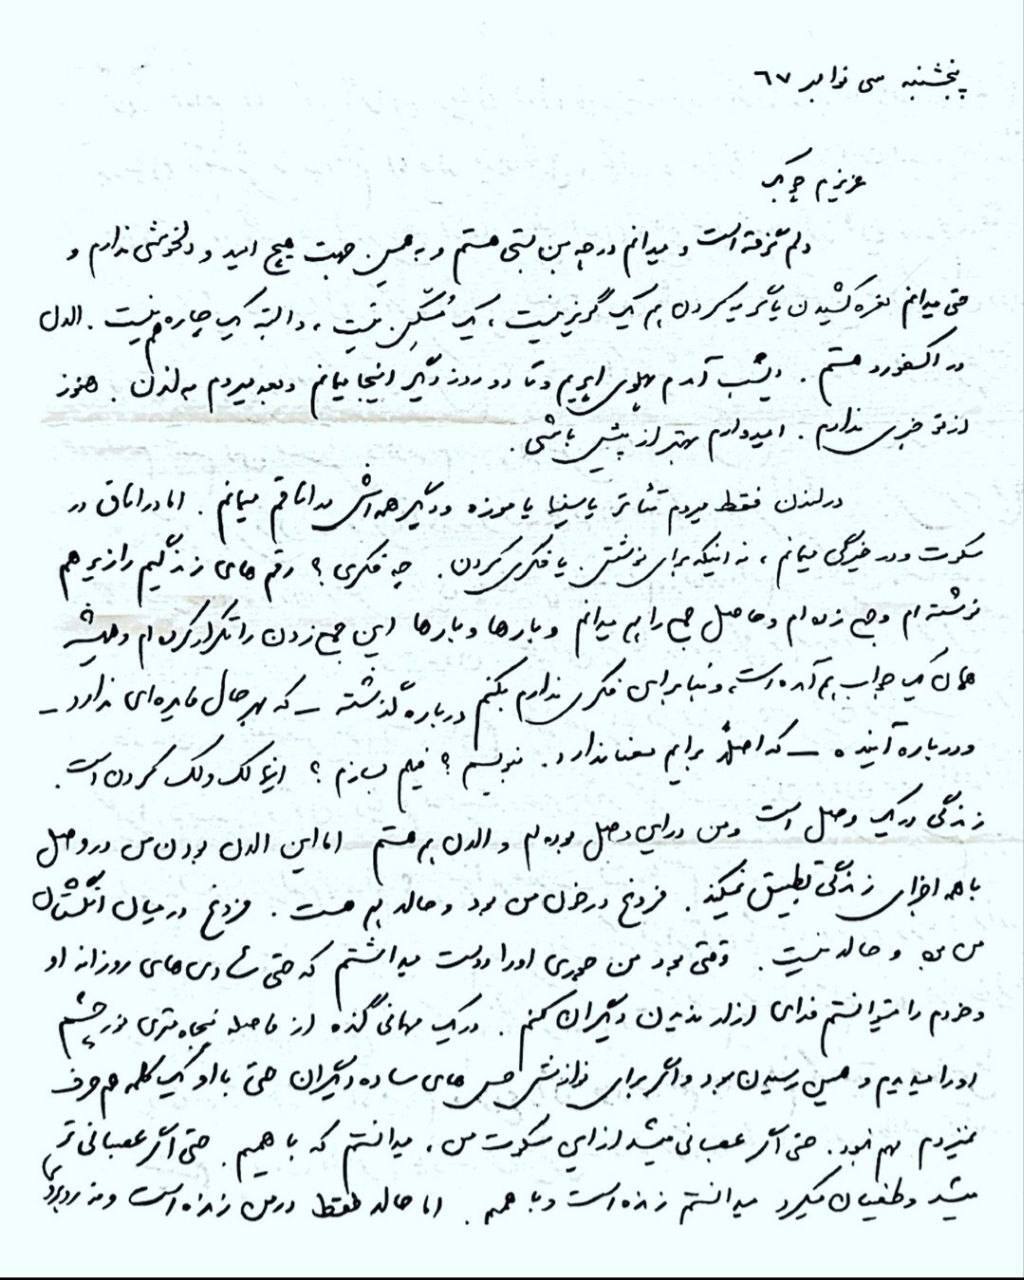 پنجشنبه سی نوامبر ٦٧
عزیزم چوبک
دلم گرفته است و میدانم در چه بن بستی هستم و به همین جهت هیچ امید و دلخوشی ندارم و
حتی میدانم نعره کشیدن یا گریه کردن هم یک گریز نیست، یک مُسَکِّن نیست، و البته یک چاره هم نیست. الان
در اکسفورد هستم. دیشب آمدم پهلوی ایرج و تا دو روز دیگر اینجا میمانم و بعد میروم به لندن. هنوز
از تو خبری ندارم. امیدوارم بهتر از پیش باشی.
در لندن فقط میروم تئاتر یا سینما یا موزه و دیگر همه اش در اتاقم میمانم. اما در اتاق در
سکوت و در خیرگی میمانم، نه اینکه برای نوشتن یا فکری کردن. چه فکری؟ رقم های زندگیم را زیر هم
نوشته ام و جمع زده ام و حاصل جمع را هم میدانم و بارها و بارها این جمع زدن را تکرار کرده ام و همیشه
همان یک جواب هم آمده است، و بنابراین فکری ندارم بکنم درباره گذشته ــ که بهرحال فایده ای ندارد ــ
و درباره آینده ــ که اصلاً برایم معنا ندارد. بنویسم؟ فیلم بسازم؟ اینها لک و لک کردن است.
زندگی در یک وصل است و من در این وصل بوده ام و الان هم هستم اما این الان بودن من در وصل
با همه اجزای زندگی تطبیق نمیکند. فروغ در خون من بود و حالا هم هست. فروغ در میان انگشتان
من بود و حالا نیست. وقتی بود من جوری او را دوست میداشتم که حتی شادی های روزانه او
و خودم را میتوانستم فدای آزار ندیدن دیگران کنم. در یک مهمانی گنده از فاصله پنجاه متری نور چشم
او را میدیدم و همین رسیدن بود و اگر برای نوازش حس های ساده دیگران حتی با او یک کلمه هم حرف
نمیزدم مهم نبود. حتی اگر عصبانی میشد از این سکوت من، میدانستم که با همیم. حتی اگر عصبانی تر
میشد و طغیان میکرد میدانستم زنده است و با همیم. اما حالا فقط در من زنده است و نه روبروی